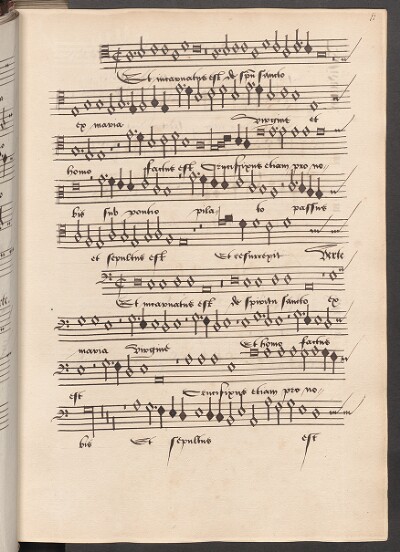 Et incarnatus est de spũ sancto
ex maria virgine et
homo factus est Crucifixus etiam pro no
bis sub pontio pila to passus
et sepultus est Et resurrexit
Et incarnatus est de spiritu sancto ex
maria virgine Et homo factus
est Crucifixus etiam pro no
bis Et sepultus est